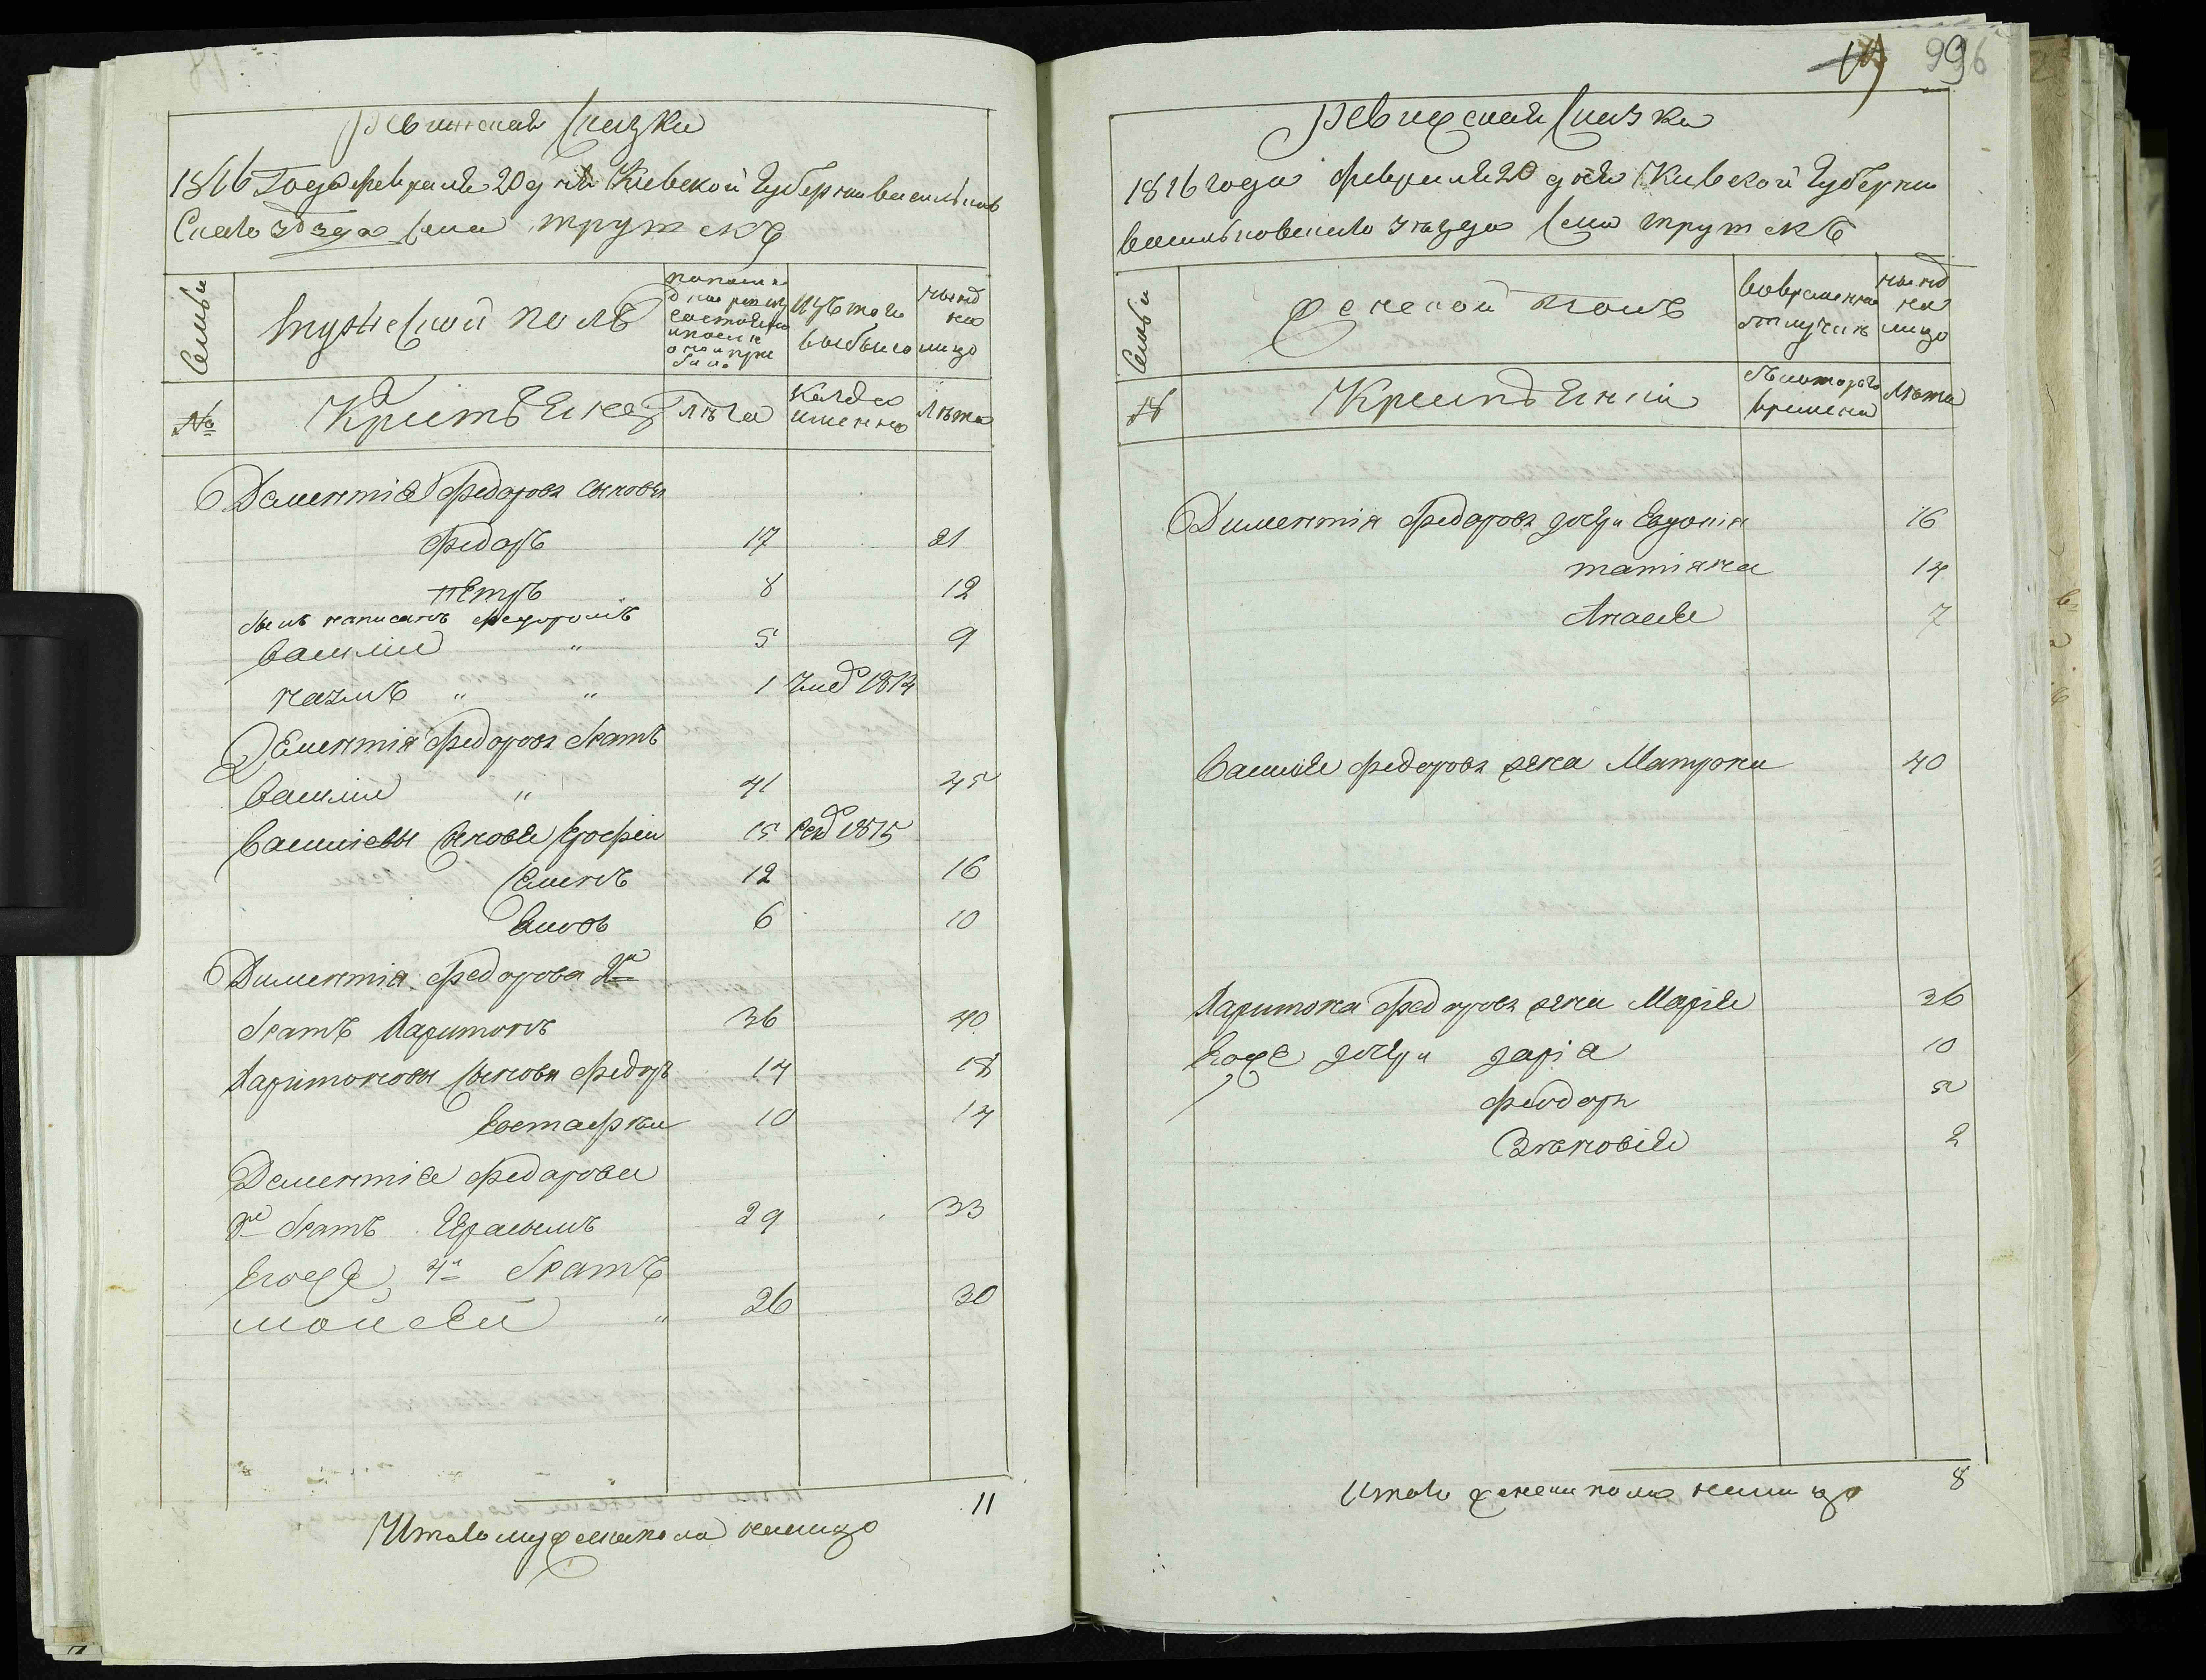 Ревижская Сказка
1816 Года февраля 20 дня Киевской Губернии васильков
Скаго уезда села трушекъ
Семьи
Мужеской полъ
по последней ревизии состояло и после оной прибыло
Изъ того выбыло
ныне на лицо
№
Крестьяне
лета
Когда именно
Лета
Дементия Федорова сыновья
Федоръ 17 21
пЕтръ 8 12
былъ написанъ Федоромъ
Василий " 5 9
назимъ " " 1 умер 1814
ДЕментия Федорова братъ
Василий " 41 45
Василиевы Сыновья Ерофей 15 рек 1815
Семенъ 12 16
Яковъ 6 10
Диментия Федорова 2й
братъ Харитонъ 36 40
Харитоновы Сыновья Федоръ 14 18
Евстафий 10 14
Дементия Федорова
3й братъ Герасимъ 29 33
Егоже 4й братъ
мойсЕй " 26 30
Итого мужеска пола налицо 11
996
Ревижская Сказка
1816 года февраля 20 дня Киевской Губернии
васильковскаго уезда села трушекъ
Семьи
Женской полъ
Во временной отлучке
ныне на лицо
№
КрестьЯнки
Съ котораго времени
Лета
Диментия Федорова дочери Евдокия 16
татияна 14
Анасия 7
Василия Федорова жена Матрона 40
Харитона Федорова жена Мария 36
Егоже дочери дария 10
феодора 5
Зеновия 2
Итого женска пола налицо 8